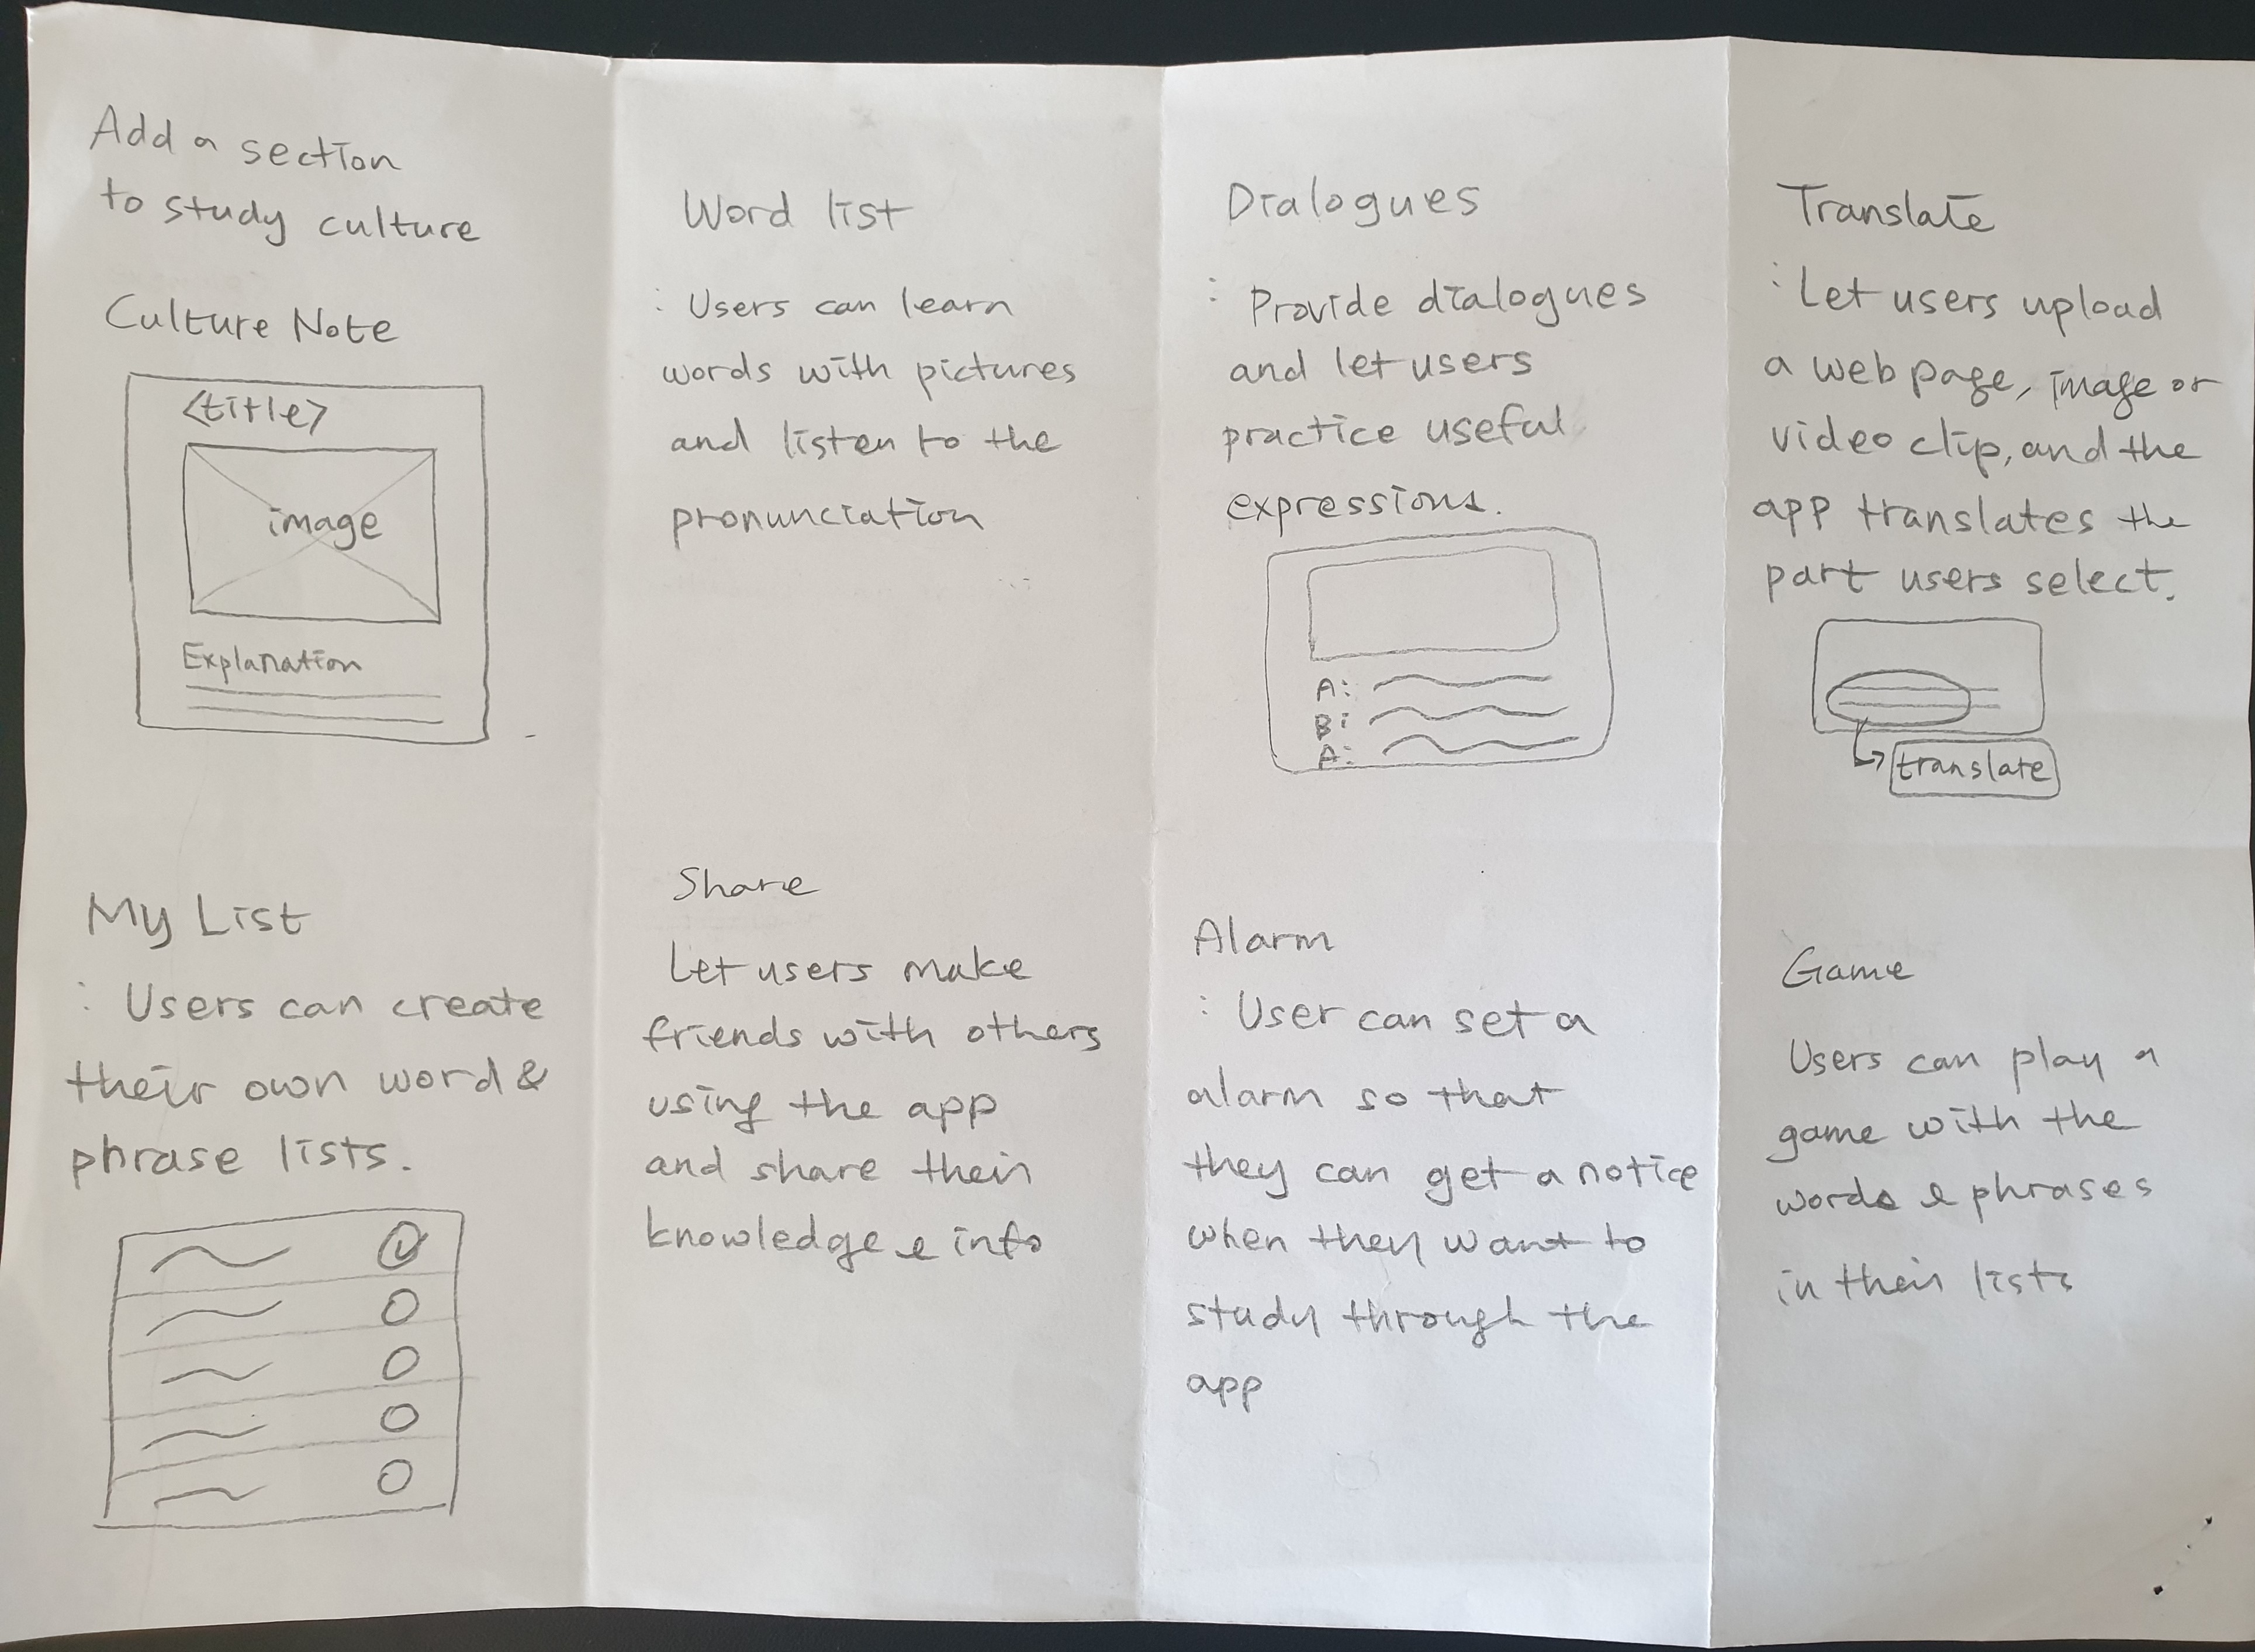 Add a section
to study culture
Culture Note
<title>
image
Explanation
Word list
: Users can learn
words with pictures
and listen to the
pronunciation
Dialogues
: Provide dialogues
and let users
practice useful
expressions.
A:
B:
A:
Translate
: Let users upload
a web page, image or
video clip, and the
app translates the
part users select.
translate
My List
: Users can create
their own word &
phrase lists.
Share
Let users make
friends with others
using the app
and share their
knowledge & info
Alarm
: User can set a
alarm so that
they can get a notice
when they want to
study through the
app
Game
Users can play a
game with the
words & phrases
in their lists